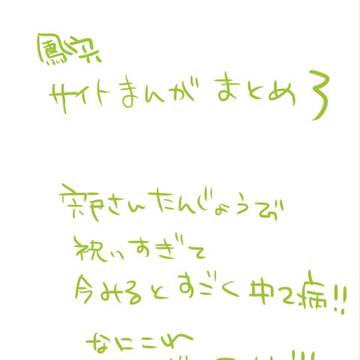 鳳宍
サイトまんが まとめ 3
宍戸さんたんじょうび
祝いすぎて
今みるとすごく中2病!!
なにこれ